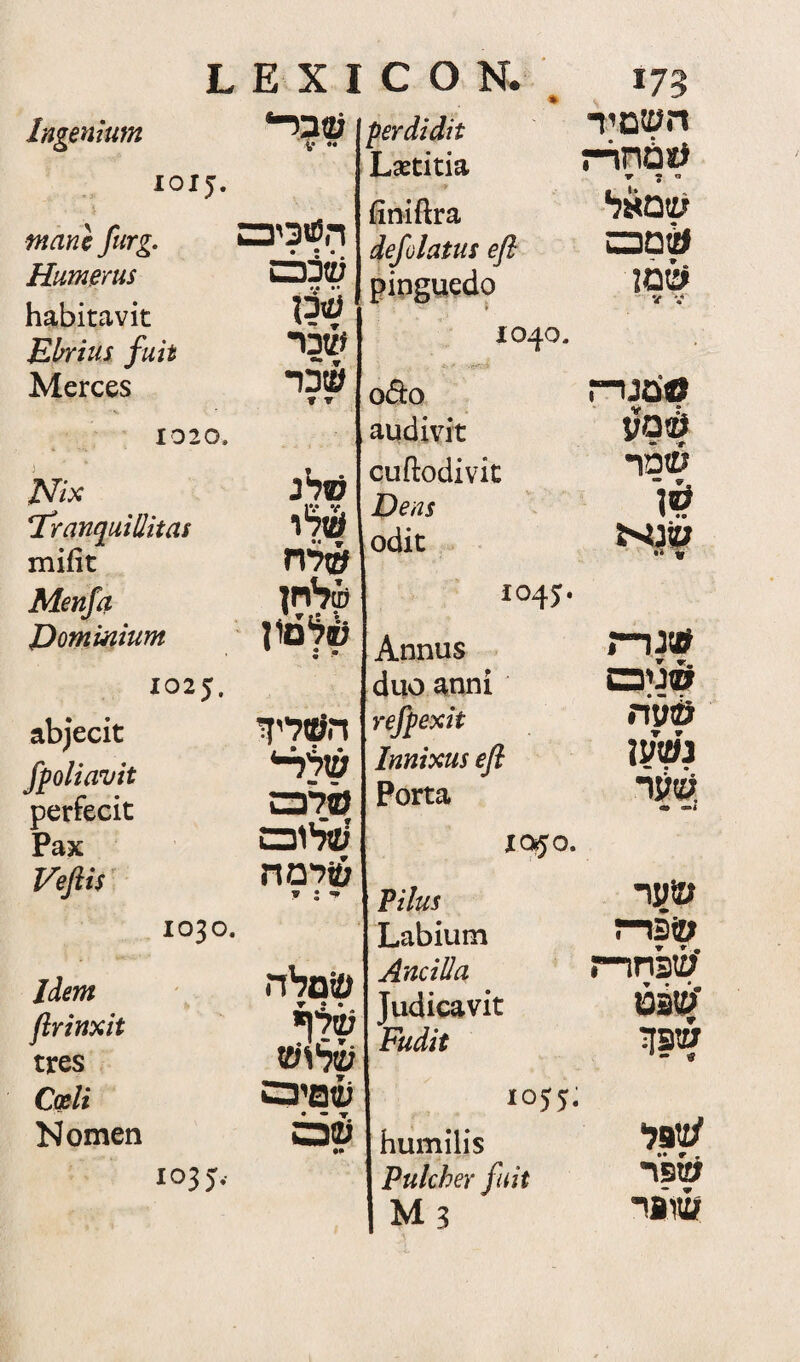 LEXICON. 173
Ingenium שֶׂכֶל
1015.
mane ſurg. השכים
Humerus שכם
habitavit שכן
Ebrius fuit שכר
Merces שכר
1020.
Nix שלג
Tranquillitas שלו
miſit שלח
Menſa שלחן
Dominium שלמון
1025.
abjecit השליך
ſpoliavit שלל
perfecit שלם
Pax שלום
Veſtis שלמה
1030.
Idem שמלה
ſtrinxit שלף
tres שלוש
Cœli שמים
Nomen שם
1035.
perdidit השמיד
Lætitia שמחה
ſiniſtra שמאל
deſolatus eſt שמם
pinguedo שמן
1040.
octo שמנה
audivit שמע
cuſtodivit שמר
Dens שן
odit שנא
1045.
Annus שנה
duo anni שנים
reſpexit שעה
Innixus eſt נשען
Porta שער
1050.
Pilus שער
Labium שפה
Ancilla שפחה
Judicavit שפט
Fudit שפך
1055.
humilis שפל
Pulcher fuit שפר
M 3 שופר